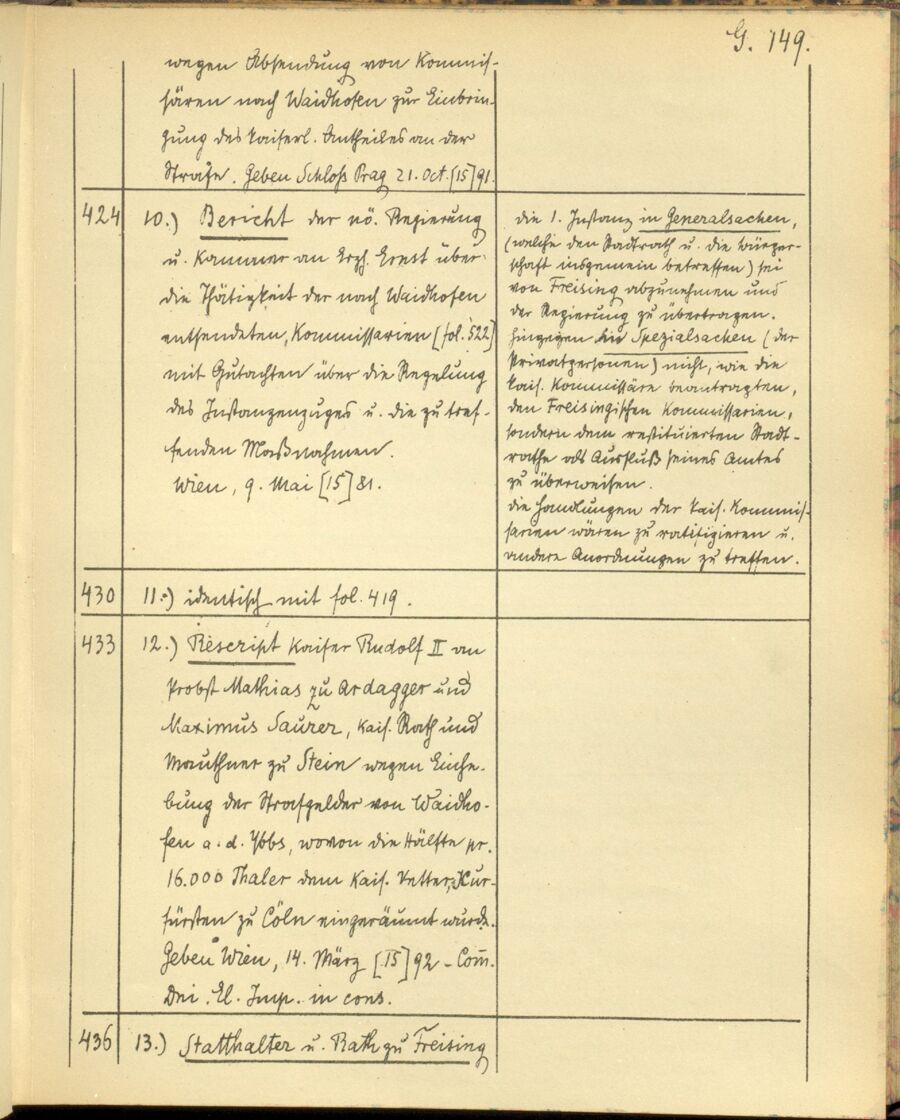 G. 149.
wegen Absendung von Kommis-
sären nach Waidhofen zur Einbrin-
gung des kaiserl. Antheiles an der
Strafe. Geben Schloß Prag 21. Oct. [15]91.
424 10.) Bericht der nö. Regierung
u. Kammer an Erzh. Ernst über
die Thätigkeit der nach Waidhofen
entsendeten Kommissarien [fol. 522]
mit Gutachten über die Regelung
des Instanzenzuges u. die zu tref-
fenden Maßnahmen.
Wien, 9. Mai [15]81.
die 1. Instanz in Generalsachen,
(welche den Stadtrath u. die Bürger-
schaft insgemein betreffen) sei
von Freising abzunehmen und
der Regierung zu übertragen.
Hingegen die Spezialsachen (der
Privatpersonen) nicht, wie die
kais. Kommissäre beantragten,
den Freisingischen Kommissarien,
sondern dem restituierten Stadt-
rathe als Ausfluß seines Amtes
zu überweisen.
Die Handlungen der kais. Kommis-
sarien wären zu ratifizieren u.
andere Anordnungen zu treffen.
430 11.) identisch mit fol. 419.
433 12.) Rescript Kaiser Rudolf II an
Probst Mathias zu Ardagger und
Maximus Saurer, kais. Rath und
Mauthner zu Stein wegen Einhe-
bung der Strafgelder von Waidho-
fen a. d. Ybbs, wovon die Hälfte pr.
16.000 Thaler dem kais. Vetter, Kur-
fürsten zu Cöln eingeräumt wurde.
Geben Wien, 14. März [15]92 - Com̄.
Dni. El. Imp. in cons.
436 13.) Statthalter u. Rath zu Freising